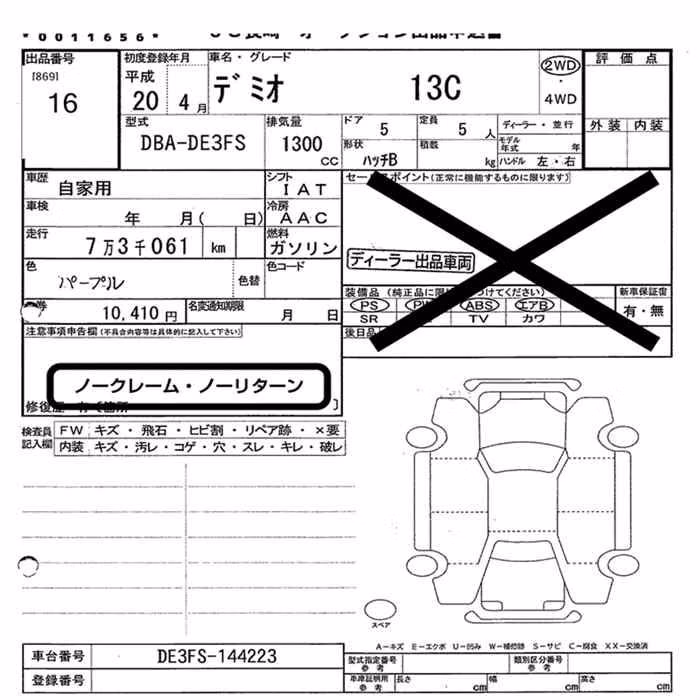 *0011656*
出品番号
[869]
16
初度登録年月
平成
20 4月
車名・グレード
デミオ 13C
2WD
・
4WD
評価点
外装 内装
型式
DBA-DE3FS
排気量
1300
CC
ドア
5
定員
5 人
ディーラー・並行
モデル
年式 年
形状
ハッチB
積載
kg
ハンドル 左・右
車歴
自家用
シフト
IAT
車検
年 月( 日)
冷房
AAC
走行
7万3千061 km
燃料
ガソリン
色
パープル
色替
色コード
10,410円
名変通知期限
月 日
セー ポイント(正常に機能するものに限ります)
ディーラー出品車両
装備品(純正品に限 つけてください)
PS PW ABS エアB
SR TV カワ
新車保証書
有・無
後日品
注意事項申告欄(不具合内容等は具体的に記入して下さい)
ノークレーム・ノーリターン
検査員
記入欄
FW キズ・飛石・ヒビ割・リペア跡・×要
内装 キズ・汚レ・コゲ・穴・スレ・キレ・破レ
スペア
A-キズ E-エクボ U-凹み W-補修跡 S-サビ C-腐食 XX-交換済
車台番号
DE3FS-144223
登録番号
型式指定番号
参考
類別区分番号
参考
車庫証明用
参考
長さ cm
幅 cm
高さ cm